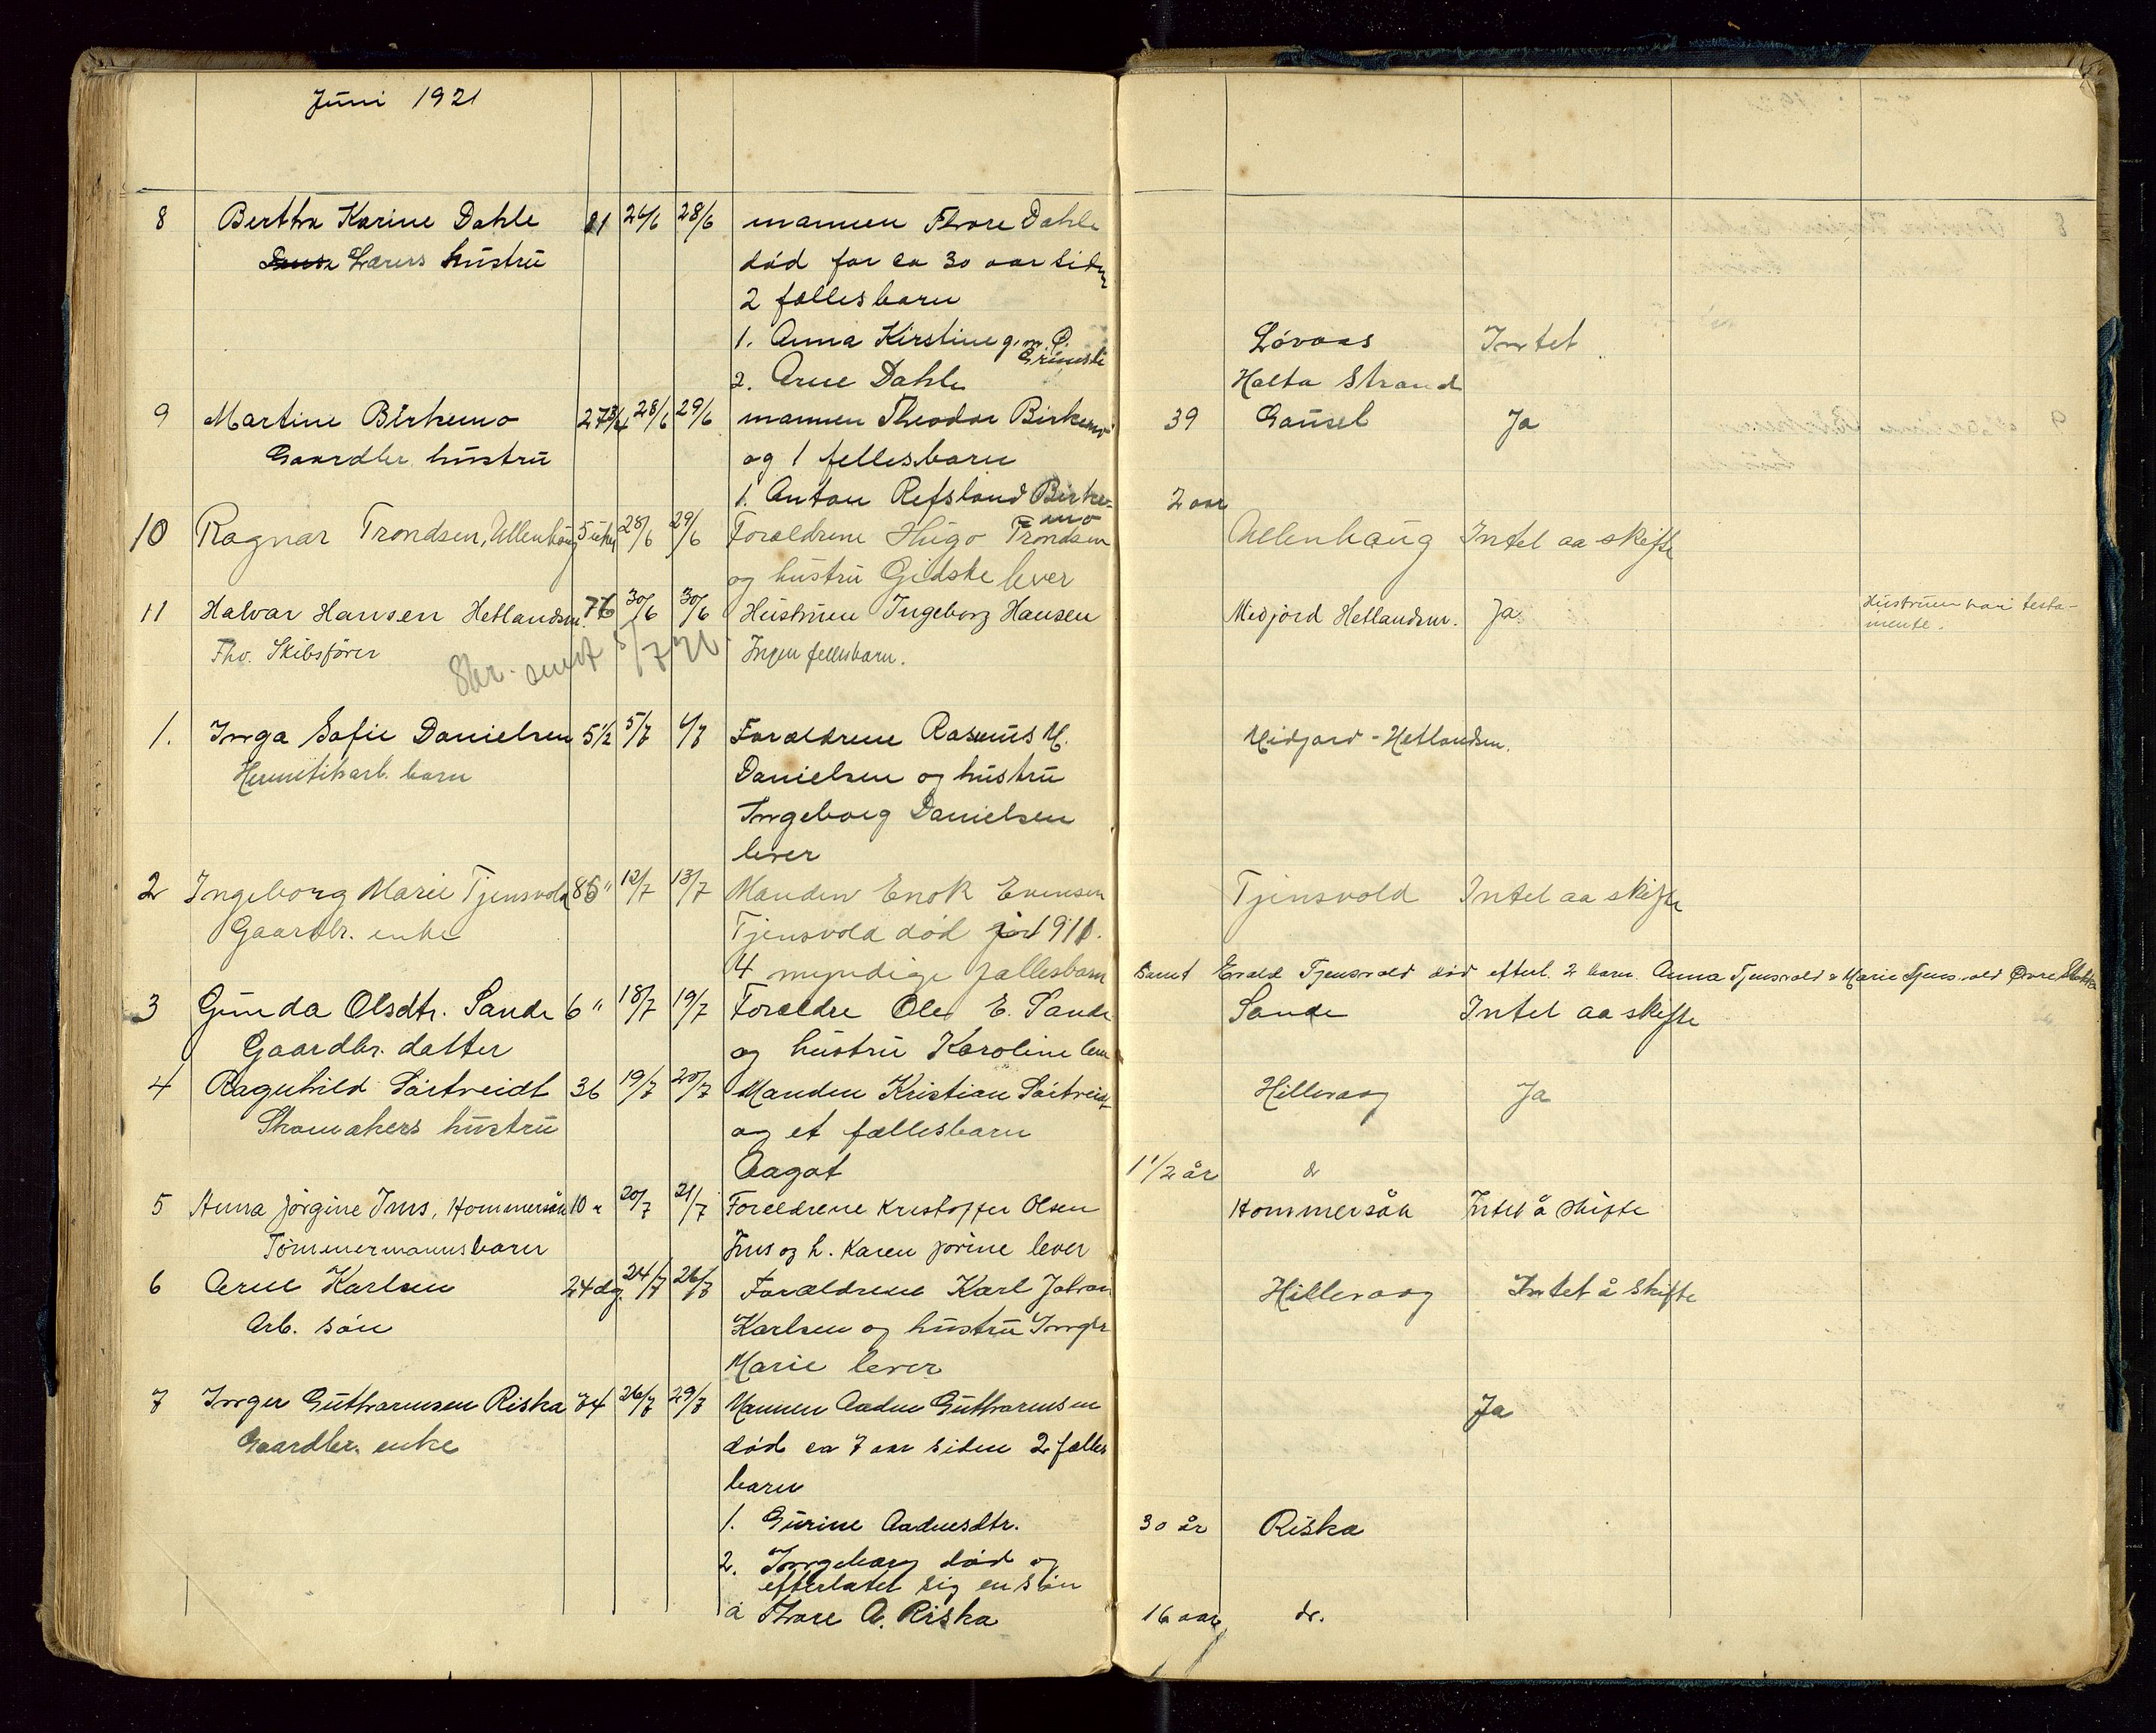 Juni 1921
8 Bertha Karine Dahle 81 26/6 28/6 mannen Thore Dahle
Lærers hustru død for ca 30 aar siden
2 fællesbarn
1. Anna Kirstine g. m. P. Løvaas Intet
Grimsli
2. Arne Dahle Halta Strand
9 Martine Birkemo 27 3/4 28/6 29/6 mannen Theodor Birkemo 39 Gausel Ja
Gaardbr. hustru og 1 fellesbarn
1. Anton Refsland Birke- 2 aar
mo
10 Ragnar Trondsen, Ullenhaug 5 uker 28/6 29/6 Forældrene Hugo Trondsen Ullenhaug Intet aa skifte
og hustru Gidske lever
11 Halvar Hansen Hetlandsm. 76 30/6 30/6 Hustruen Ingeborg Hansen Midjord Hetlandsm. Ja. Hustruen har testa-
mente.
Fhv. Skibsfører Ingen fellesbarn.
Skr. sendt 5/7 21
1. Inga Sofie Danielsen 5 1/2 5/7 6/7 Forældrene Rasmus M. Midjord - Hetlandsm.
Hermetikarb. barn Danielsen og hustru
Ingeborg Danielsen
lever
2 Ingeborg Marie Tjensvold 85 " 12/7 13/7 Manden Enok Evensen Tjensvold Intet aa skifte
Gaardbr. enke Tjensvold død 1911.
4 myndige fællesbarn samt Evald Tjensvold død efterl. 2 barn. Anna Tjensvold & Marie Tjensvold Øvre
3 Gunda Olsdtr. Sande 6 " 18/7 19/7 Forældre Ole E. Sande Sande Intet aa skifte
Gaardbr. datter og hustru Karoline lever
4 Ragnhild Søitveidt 36 19/7 20/7 Manden Kristian Søitveidt Hillevaag Ja
Skomakers hustru og et fællesbarn
Aagot 1 1/2 år d
5 Anna Jørgine Ims, Hommersåk 10 " 20/7 21/7 Foreldrene Kristoffer Olsen Hommersåk Intet å skifte
Tømmermannsbarn Ims og h. Karen Jorine lever
6 Arne Karlsen 24 dg. 24/7 26/7 Forældrene Karl Johan Hillevaag Intet å skifte
Arb. søn Karlsen og hustru Inger
Marie lever
7 Inger Guthormsen Riska 74 26/7 29/7 Mannen Aadne Guthormsen Ja
Gaardbr. enke død ca 7 aar siden 2 fælles
barn
1. Gurine Aadnesdtr. 30 år Riska
2. Ingeborg død og
efterlatet sig en søn
a Thore A. Riska 16 aar do.